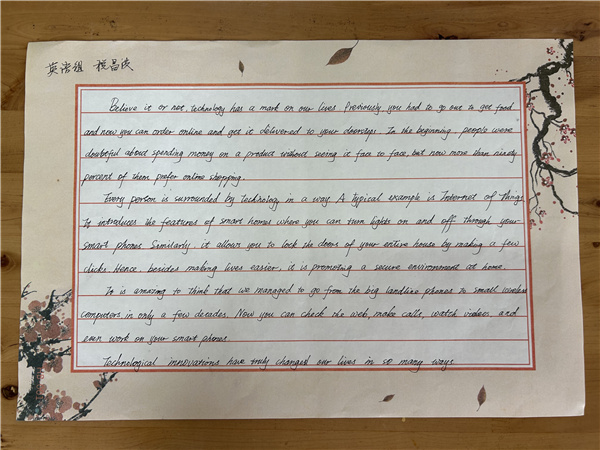 英语组 祝昌波
Believe it or not, technology has a mark on our lives. Previously you had to go out to get food
and now you can order online and get it delivered to your doorstep. In the beginning, people were
doubtful about spending money on a product without seeing it face to face, but now more than ninety
percent of them prefer online shopping.
Every person is surrounded by technology in a way. A typical example is Internet of Things.
It introduces the features of smart homes where you can turn lights on and off through your
smart phones. Similarly, it allows you to lock the doors of your entire house by making a few
clicks. Hence, besides making lives easier, it is promoting a secure environment at home.
It is amazing to think that we managed to go from the big landline phones to small wireless
computers in only a few decades. Now you can check the web, make calls, watch videos, and
even work on your smart phones.
Technological innovations have truly changed our lives in so many ways.